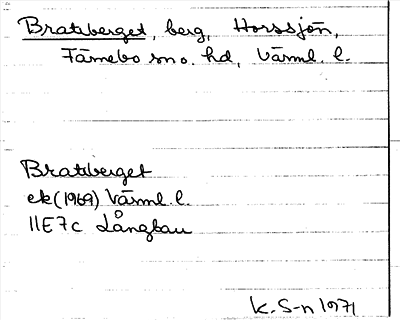 Bratberget, berg, Horssjön,
Färnebo sn o. hd, Värml. l.
Bratberget
ek (1969) Värml. l.
11E7c Långban
K. S-n 1971